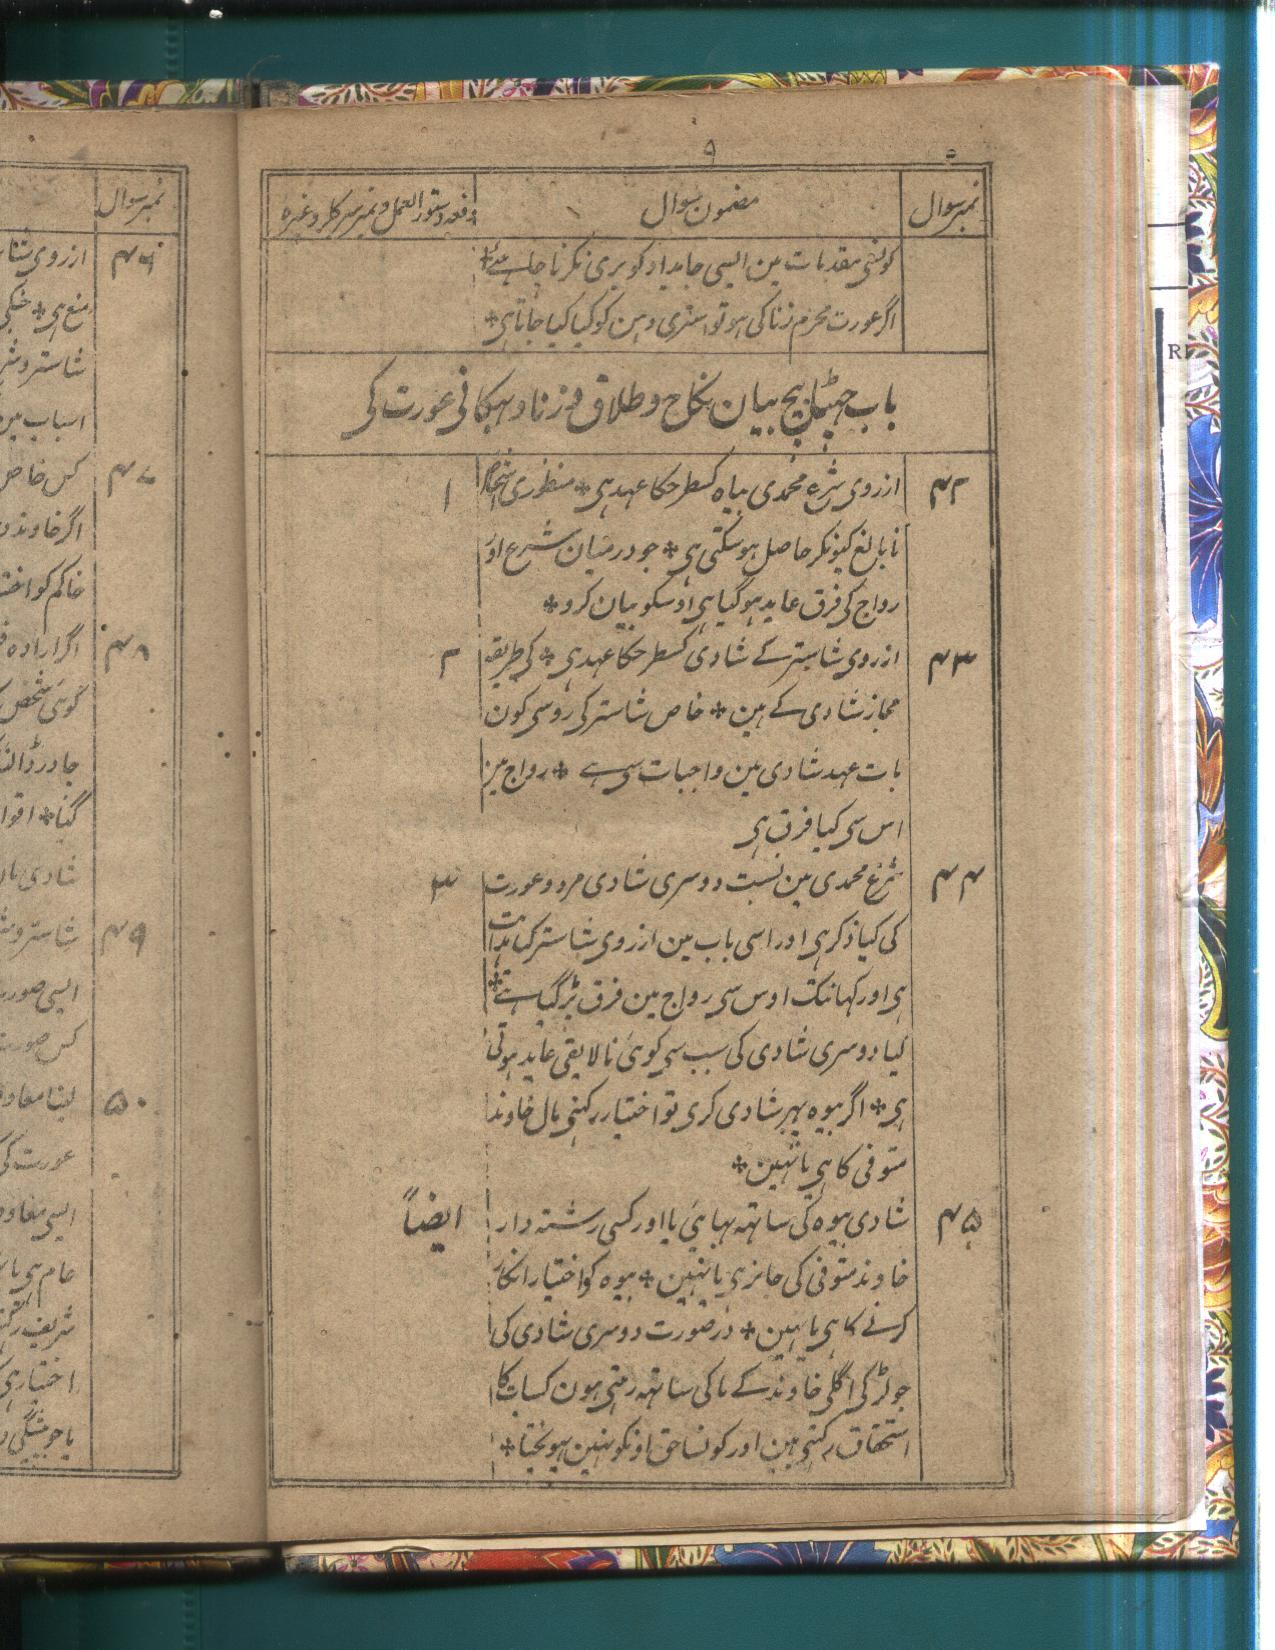 ۹
نمبر سوال مضمون سوال دفعہ دستور العمل و نمبر سرکلر وغیرہ
کونسی مقدمات مین ایسی جایداد کو بری نکرنا چاہئے *
اگر عورت مجرم زنا کی ہو تو استری دہن کو کیا کیا جاتا ہی *
باب چہٹا بیچ بیان نکاح و طلاق و زنا و بہکانی عورت کی
۴۲ از روی شرع محمدی بیاہ کسطرحکا عہد ہی * منظوری ۱
نابالغ کیونکر حاصل ہو سکتی ہی * جو درمیان شرع اور
رواج کی فرق عاید ہو گیا ہی اوسکو بیان کرو *
۴۳ از روی شاستر کے شادی کسطرحکا عہد ہی * کی طریقہ ۲
مجاز شادی کے ہین * خاص شاستر کی روسی کون
بات عہد شادی مین واجبات سی ہے * رواج مین
اس سی کیا فرق ہی
۴۴ شرع محمدی مین نسبت دوسری شادی مرد و عورت ۳
کی کیا ذکر ہی اور اسی باب مین از روی شاستر کیا ہدایت
ہی اور کہانتک اوس سی رواج مین فرق پڑ گیا ہے *
کیا دوسری شادی کی سبب سی کوئی نالایقی عاید ہوتی
ہی * اگر بیوہ پہر شادی کری تو اختیار رکہنی مال خاوند
متوفی کا ہی یا نہین *
۴۵ شادی بیوہ کی ساتہہ بہائی یا اور کسی رشتہ دار ایضاً
خاوند متوفی کی جایز ہی یا نہین * بیوہ کو اختیار انکار
کرنے کا ہی یا نہین * درصورت دوسری شادی کی
جو لڑکی اگلی خاوند کے ما کی ساتہہ رہتی ہون کس بات کا
استحقاق رکہتی ہین اور کونسا حق اونکو نہین پہونچتا *
نمبر سوال
۴۶ از روی
منع ہی *
شاستر و
اسباب
۴۷ کس خاص
اگر خاوند
حاکم کو
۴۸ اگر ارادہ
کوئی شخص
چادر
گیا *
شادی
۴۹ شاستر
ایسی صورت
کس صورت
۵۰ لینا
عورت کی
ایسی
عام ہی
شریف
اختیار
یا